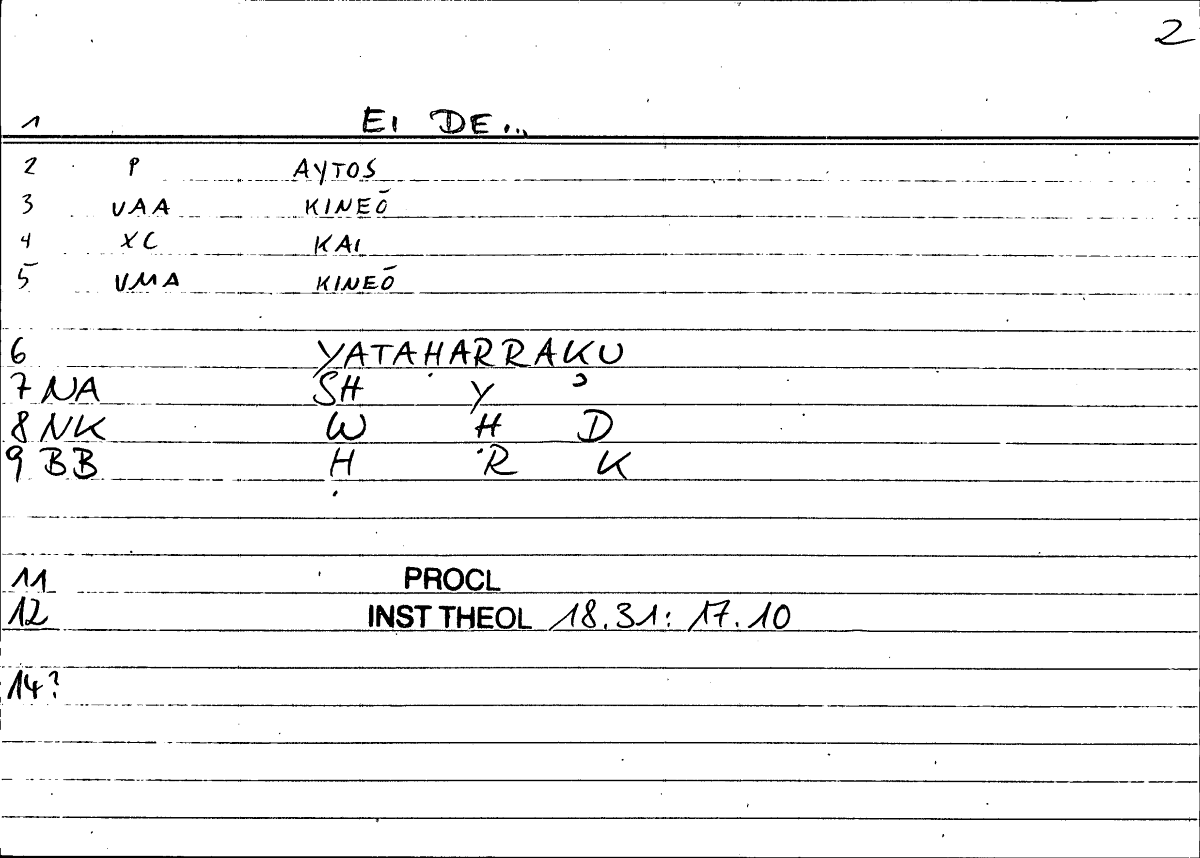 2
1 EI DE...
2 P AYTOS
3 VAA KINEŌ
4 XC KAI
5 VMA KINEŌ
6 YATAḤARRAKU
7 NA SH Y ʾ
8 NK W Ḥ D
9 BB Ḥ R K
11 PROCL
12 INST THEOL 18.31: 17.10
14?